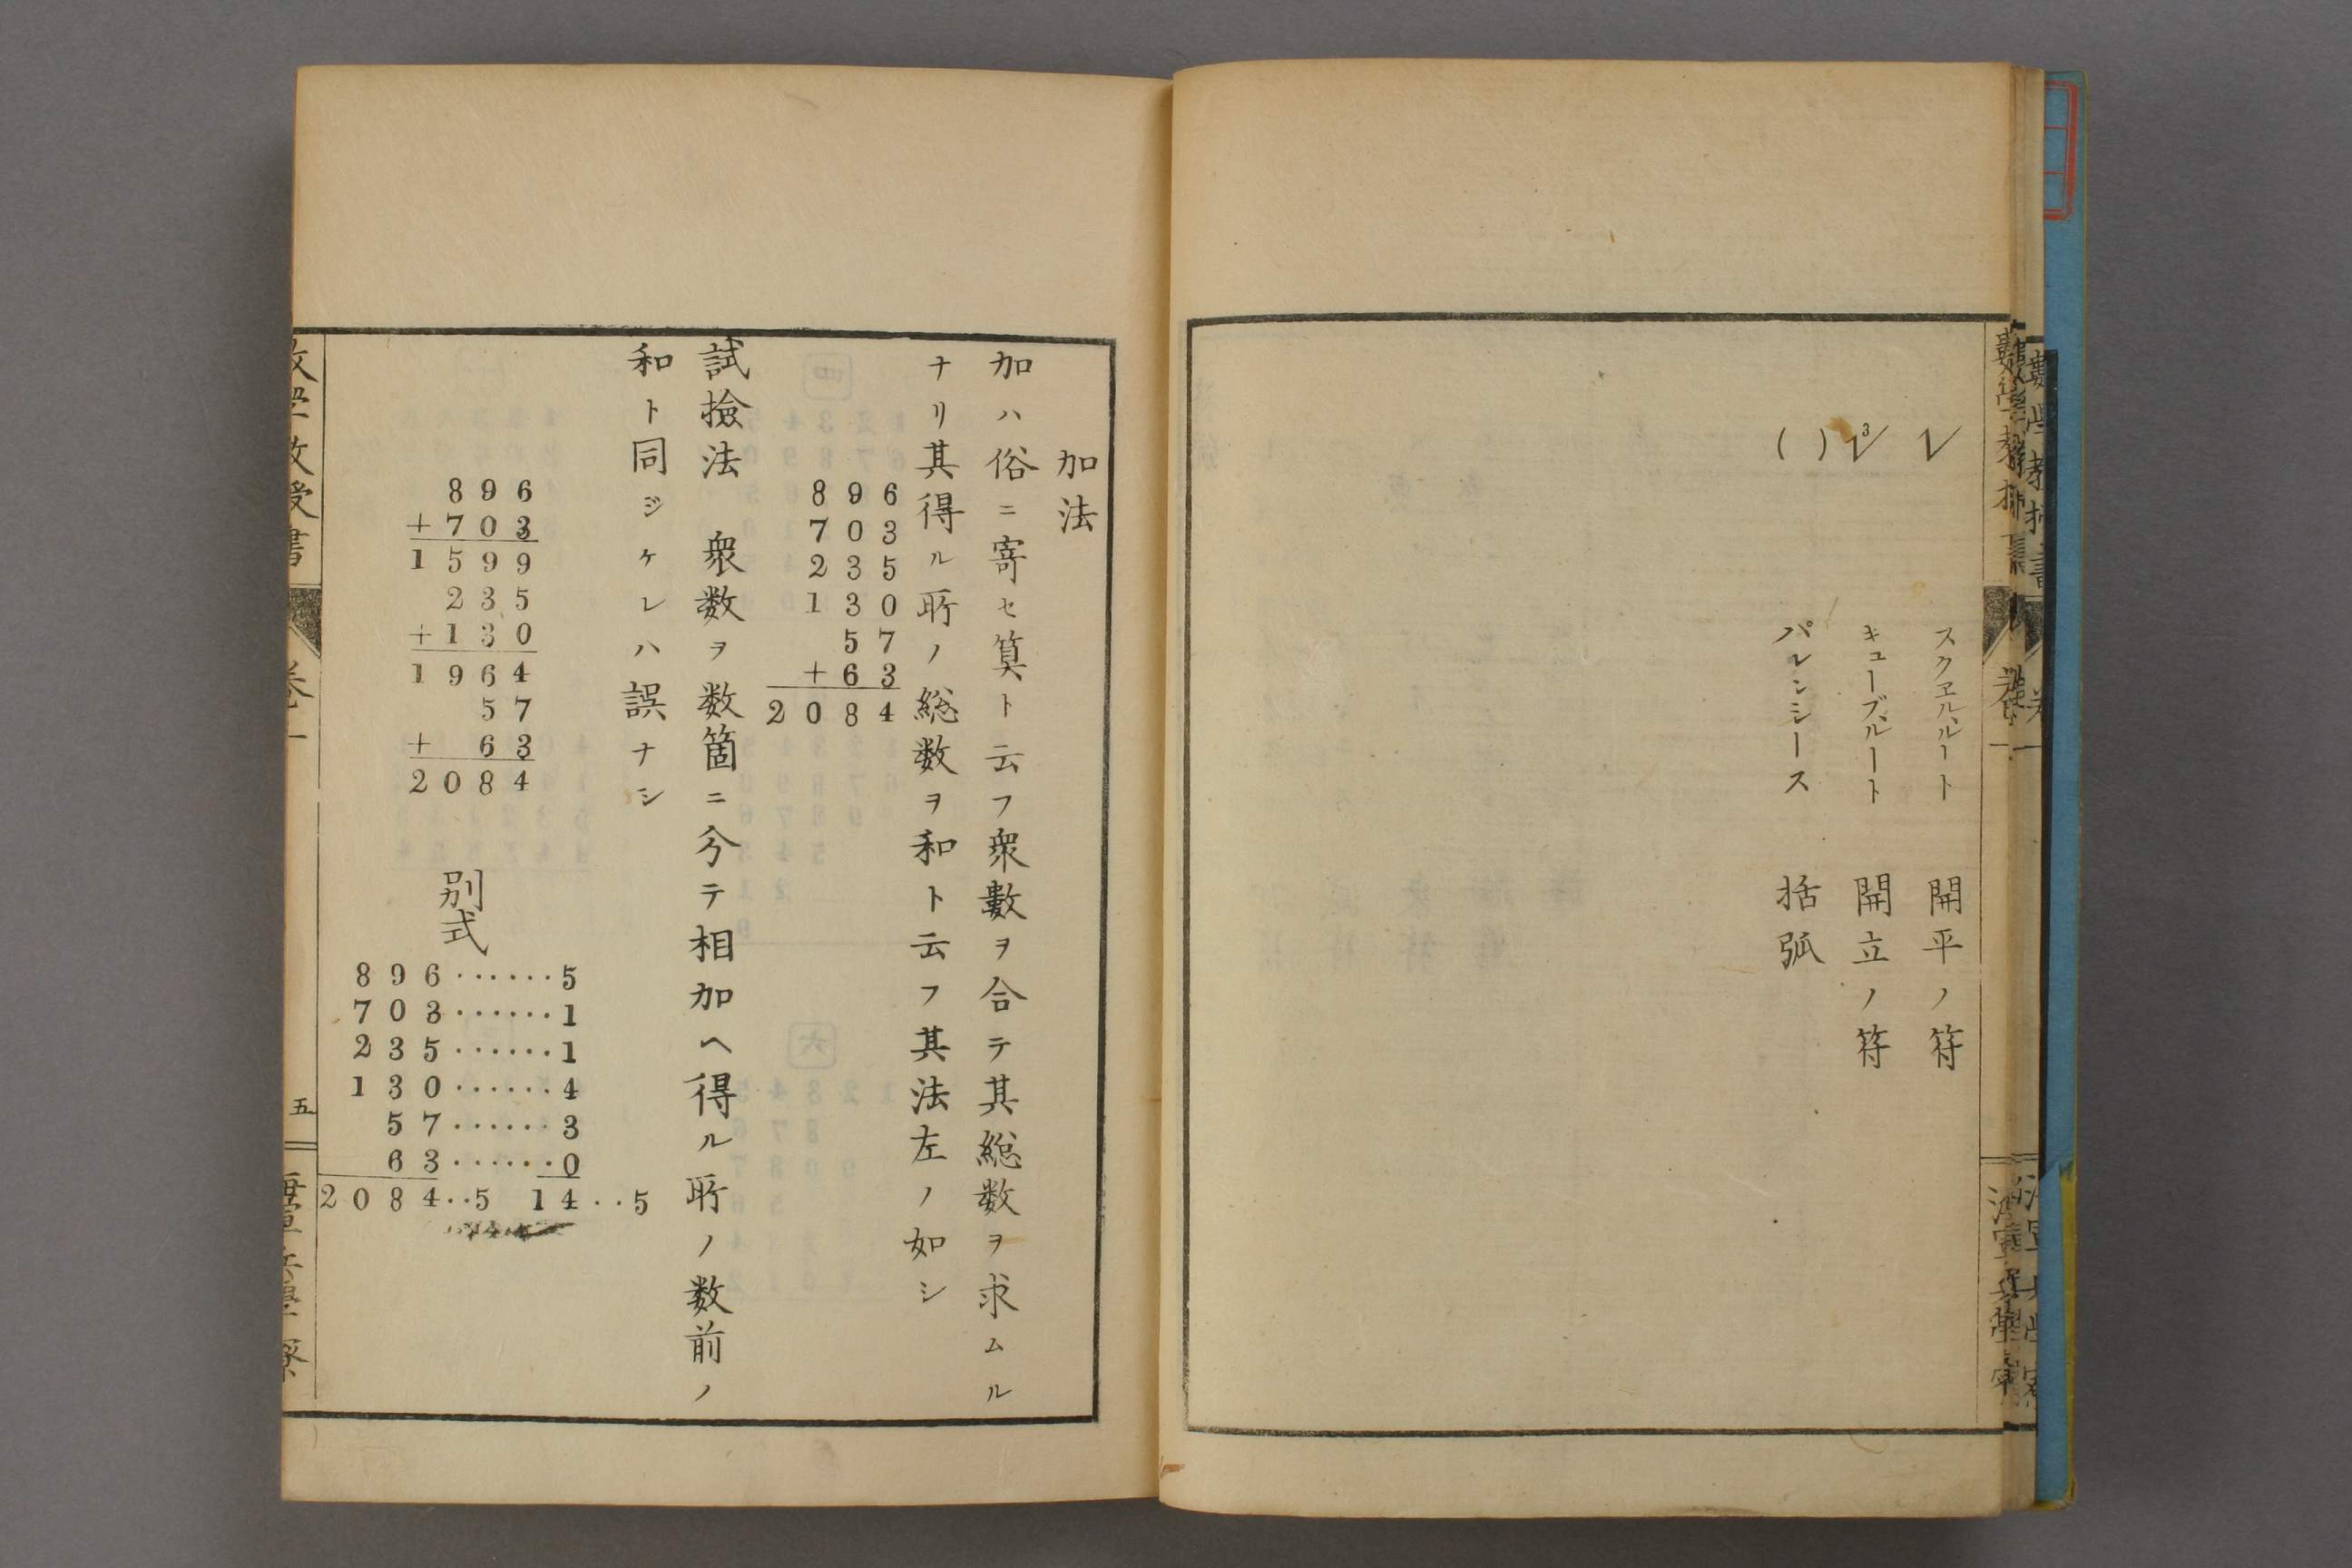 √ スクヱルルート 開平ノ符
3√ キューブルート 開立ノ符
( ) パレンシース 括弧
加法
加ハ俗ニ寄セ算ト云フ衆數ヲ合テ其総数ヲ求ムル
ナリ其得ル所ノ総数ヲ和ト云フ其法左ノ如シ
896
703
235
130
57
+63
2084
試撿法 衆数ヲ数箇ニ分テ相加ヘ得ル所ノ数前ノ
和ト同ジケレハ誤ナシ
896
+703
1599
235
+130
1964
57
+ 63
2084
別式
896······5
703······1
235······1
130······4
57······3
63······0
2084··5 14··5
卷一
五